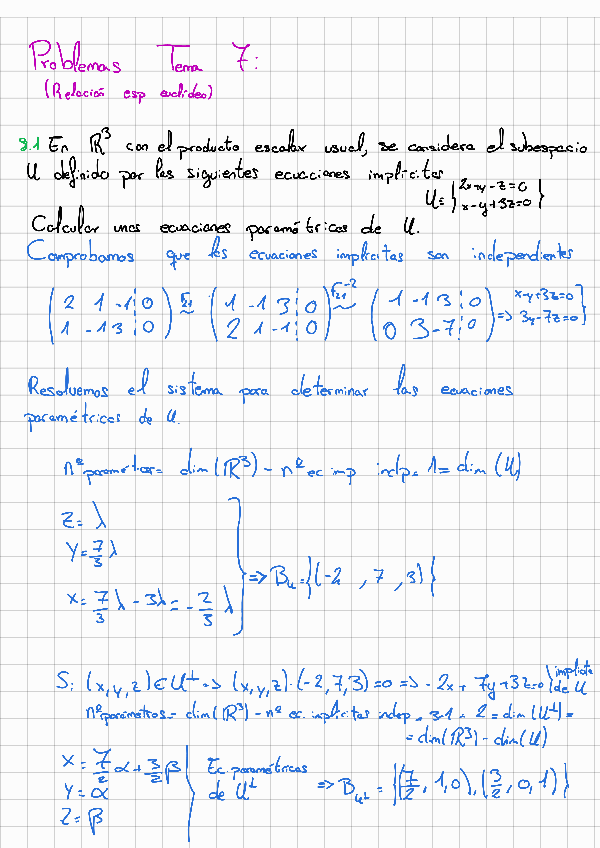 Problemas Tema 7:
(Relación esp euclídeo)
8.1 En ℝ³ con el producto escalar usual, se considera el subespacio
U definido por las siguientes ecuaciones implícitas
U = { 2x+y-z=0
x-y+3z=0 }
Calcular unas ecuaciones paramétricas de U.
Comprobamos que las ecuaciones implícitas son independientes
(2 1 -1 | 0) F21 ~ (1 -1 3 | 0) F21^-2 ~ (1 -1 3 | 0) => x-y+3z=0
(1 -1 3 | 0) (2 1 -1 | 0) (0 3 -7 | 0) 3y-7z=0 }
Resolvemos el sistema para determinar las ecuaciones
paramétricas de U.
nº parametros = dim(ℝ³) - nº ec imp indp = 1 = dim (U)
Z = λ
Y = 7/3 λ
X = 7/3 λ - 3λ = -2/3 λ } => B_U = {(-2, 7, 3)}
Si (x,y,z) ∈ U^⊥ => (x,y,z)·(-2,7,3) = 0 => -2x + 7y + 3z = 0 } implícita de U
nº parámetros = dim(ℝ³) - nº ec. implícitas indep = 3-1 = 2 = dim(U^⊥) =
= dim(ℝ³) - dim(U)
X = 7/2 α + 3/2 β
Y = α
Z = β } Ec. paramétricas de U^⊥ => B_U^⊥ = {(7/2, 1, 0), (3/2, 0, 1)}